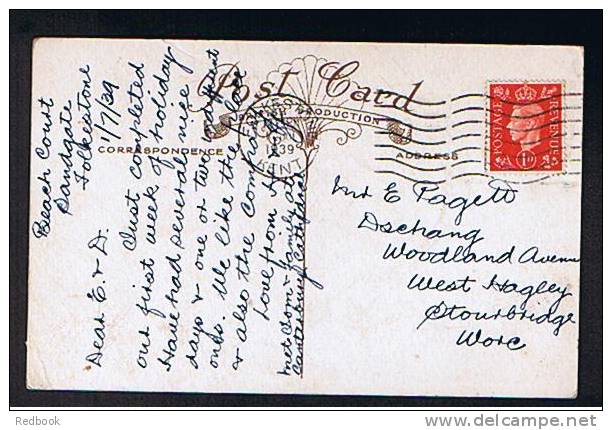 Post Card
PRODUCTION
CORRESPONDENCE
ADDRESS
FOLKESTONE
1939
KENT
POSTAGE
REVENUE
1D
Beach Court
Sandgate
Folkestone
1/7/39
Dear E & D.
Just completed
our first week of holiday
Have had several nice
days & one or two
ones. We like the place
& also the
Love from
met Dom & family at
Canterbury Cathedral
Mr E Pagett
Dschang
Woodland Avenue
West Hagley
Stourbridge
Worc
Redbook
www.delcampe.net